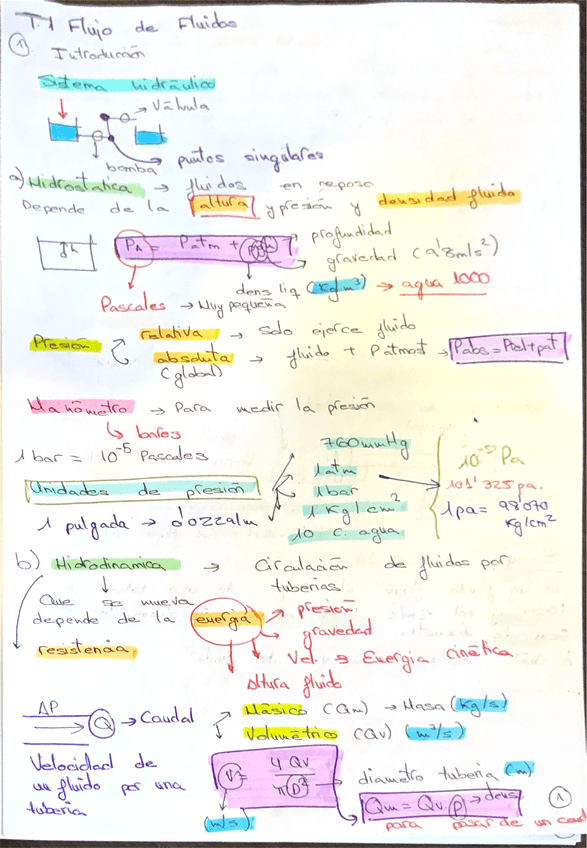 T.1 Flujo de Fluidos
① Introducción
Sistema hidráulico
→ Válvula
bomba
puntos singulares
a) Hidrostatica → fluidos en reposo
Depende de la altura y presión y densidad fluido
h
PA = Patm + ρgh → profundidad
gravedad (9'8m/s²)
dens liq (Kg/m³) → agua 1000
Pascales → Muy pequeña
Presión
relativa → Solo ejerce fluido
absoluta → fluido + Patmost → Pabs = Prel + pat
(global)
Manómetro → Para medir la presión
↳ bares
1 bar = 10⁻⁵ Pascales
Unidades de presión
760mmHg
1atm
1bar
1 Kg/cm²
10 c. agua
10⁻⁵ Pa
101'325 pa.
1pa = 98070
Kg/cm²
1 pulgada →
b) Hidrodinamica → Circulación de fluidos por
tuberias
Que se mueva
depende de la energia
presión
gravedad
Vel. → Energia cinética
Altura fluido
resistencia
ΔP
Q → Caudal
Másico (Qm) → Masa (Kg/s)
Volumétrico (Qv) (m³/s)
Velocidad de
un fluido por una
tuberia
V = 4 Qv / π D² → diametro tuberia (m)
(m/s)
Qm = Qv ρ → dens.
para pasar de un
①